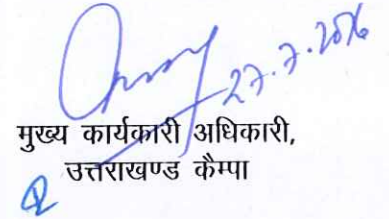 27.7.2016
मुख्य कार्यकारी अधिकारी,
उत्तराखण्ड कैम्पा